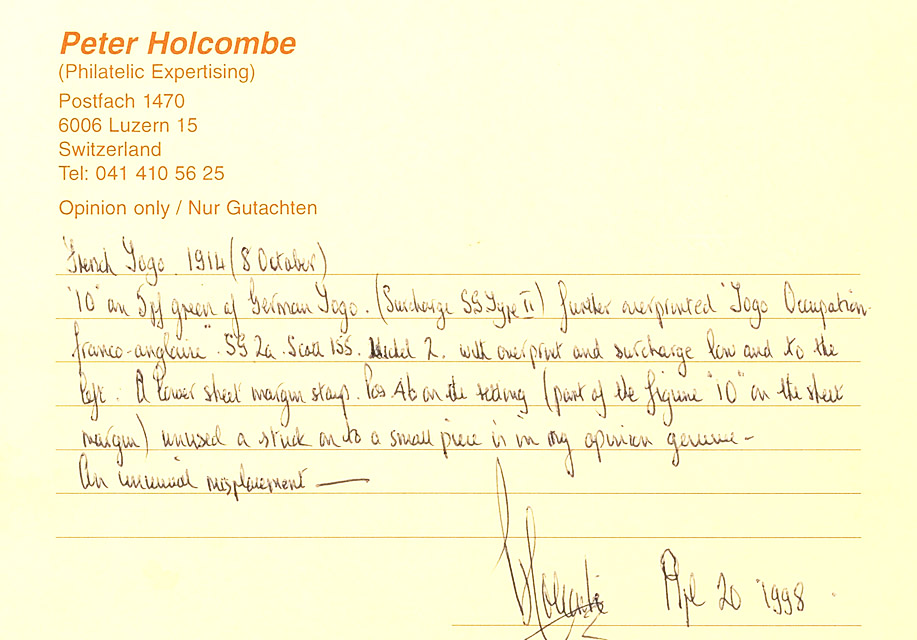 Peter Holcombe
(Philatelic Expertising)
Postfach 1470
6006 Luzern 15
Switzerland
Tel: 041 410 56 25
Opinion only / Nur Gutachten
French Togo. 1914 (8 October)
"10" on 5pf green of German Togo. (Surcharge SG Type II) further overprinted "Togo Occupation
franco-anglaise". SG 2a. Scott 155. 2. with overprint and surcharge low and to the
left. A lower sheet margin stamp. Pos 46 on the setting (part of the figure "10" on the sheet
margin) unused & stuck on to a small piece is in my opinion genuine -
An unusual misplacement —
April 20 1998